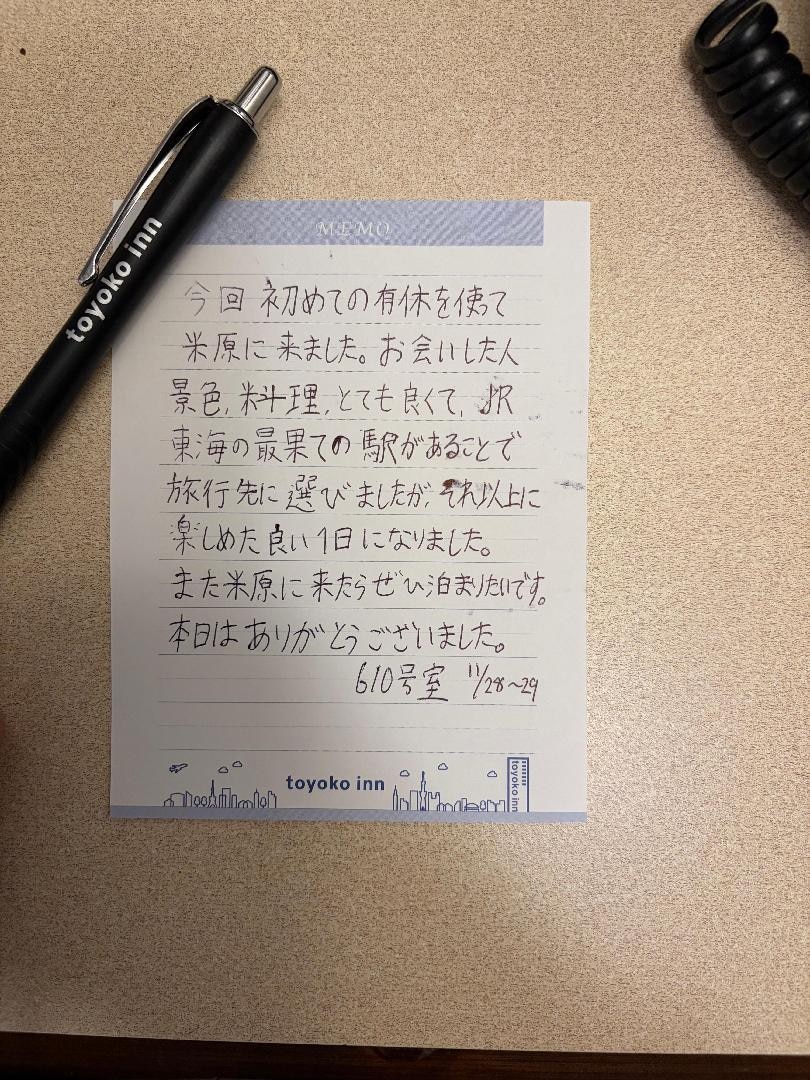 MEMO
toyoko inn
今回 初めての有休を使って
米原に来ました。お会いした人
景色, 料理, とても良くて, JR
東海の最果ての駅があることで
旅行先に選びましたが, それ以上に
楽しめた良い1日になりました。
また米原に来たらぜひ泊まりたいです。
本日はありがとうございました。
610号室 11/28~29
toyoko inn
toyoko inn